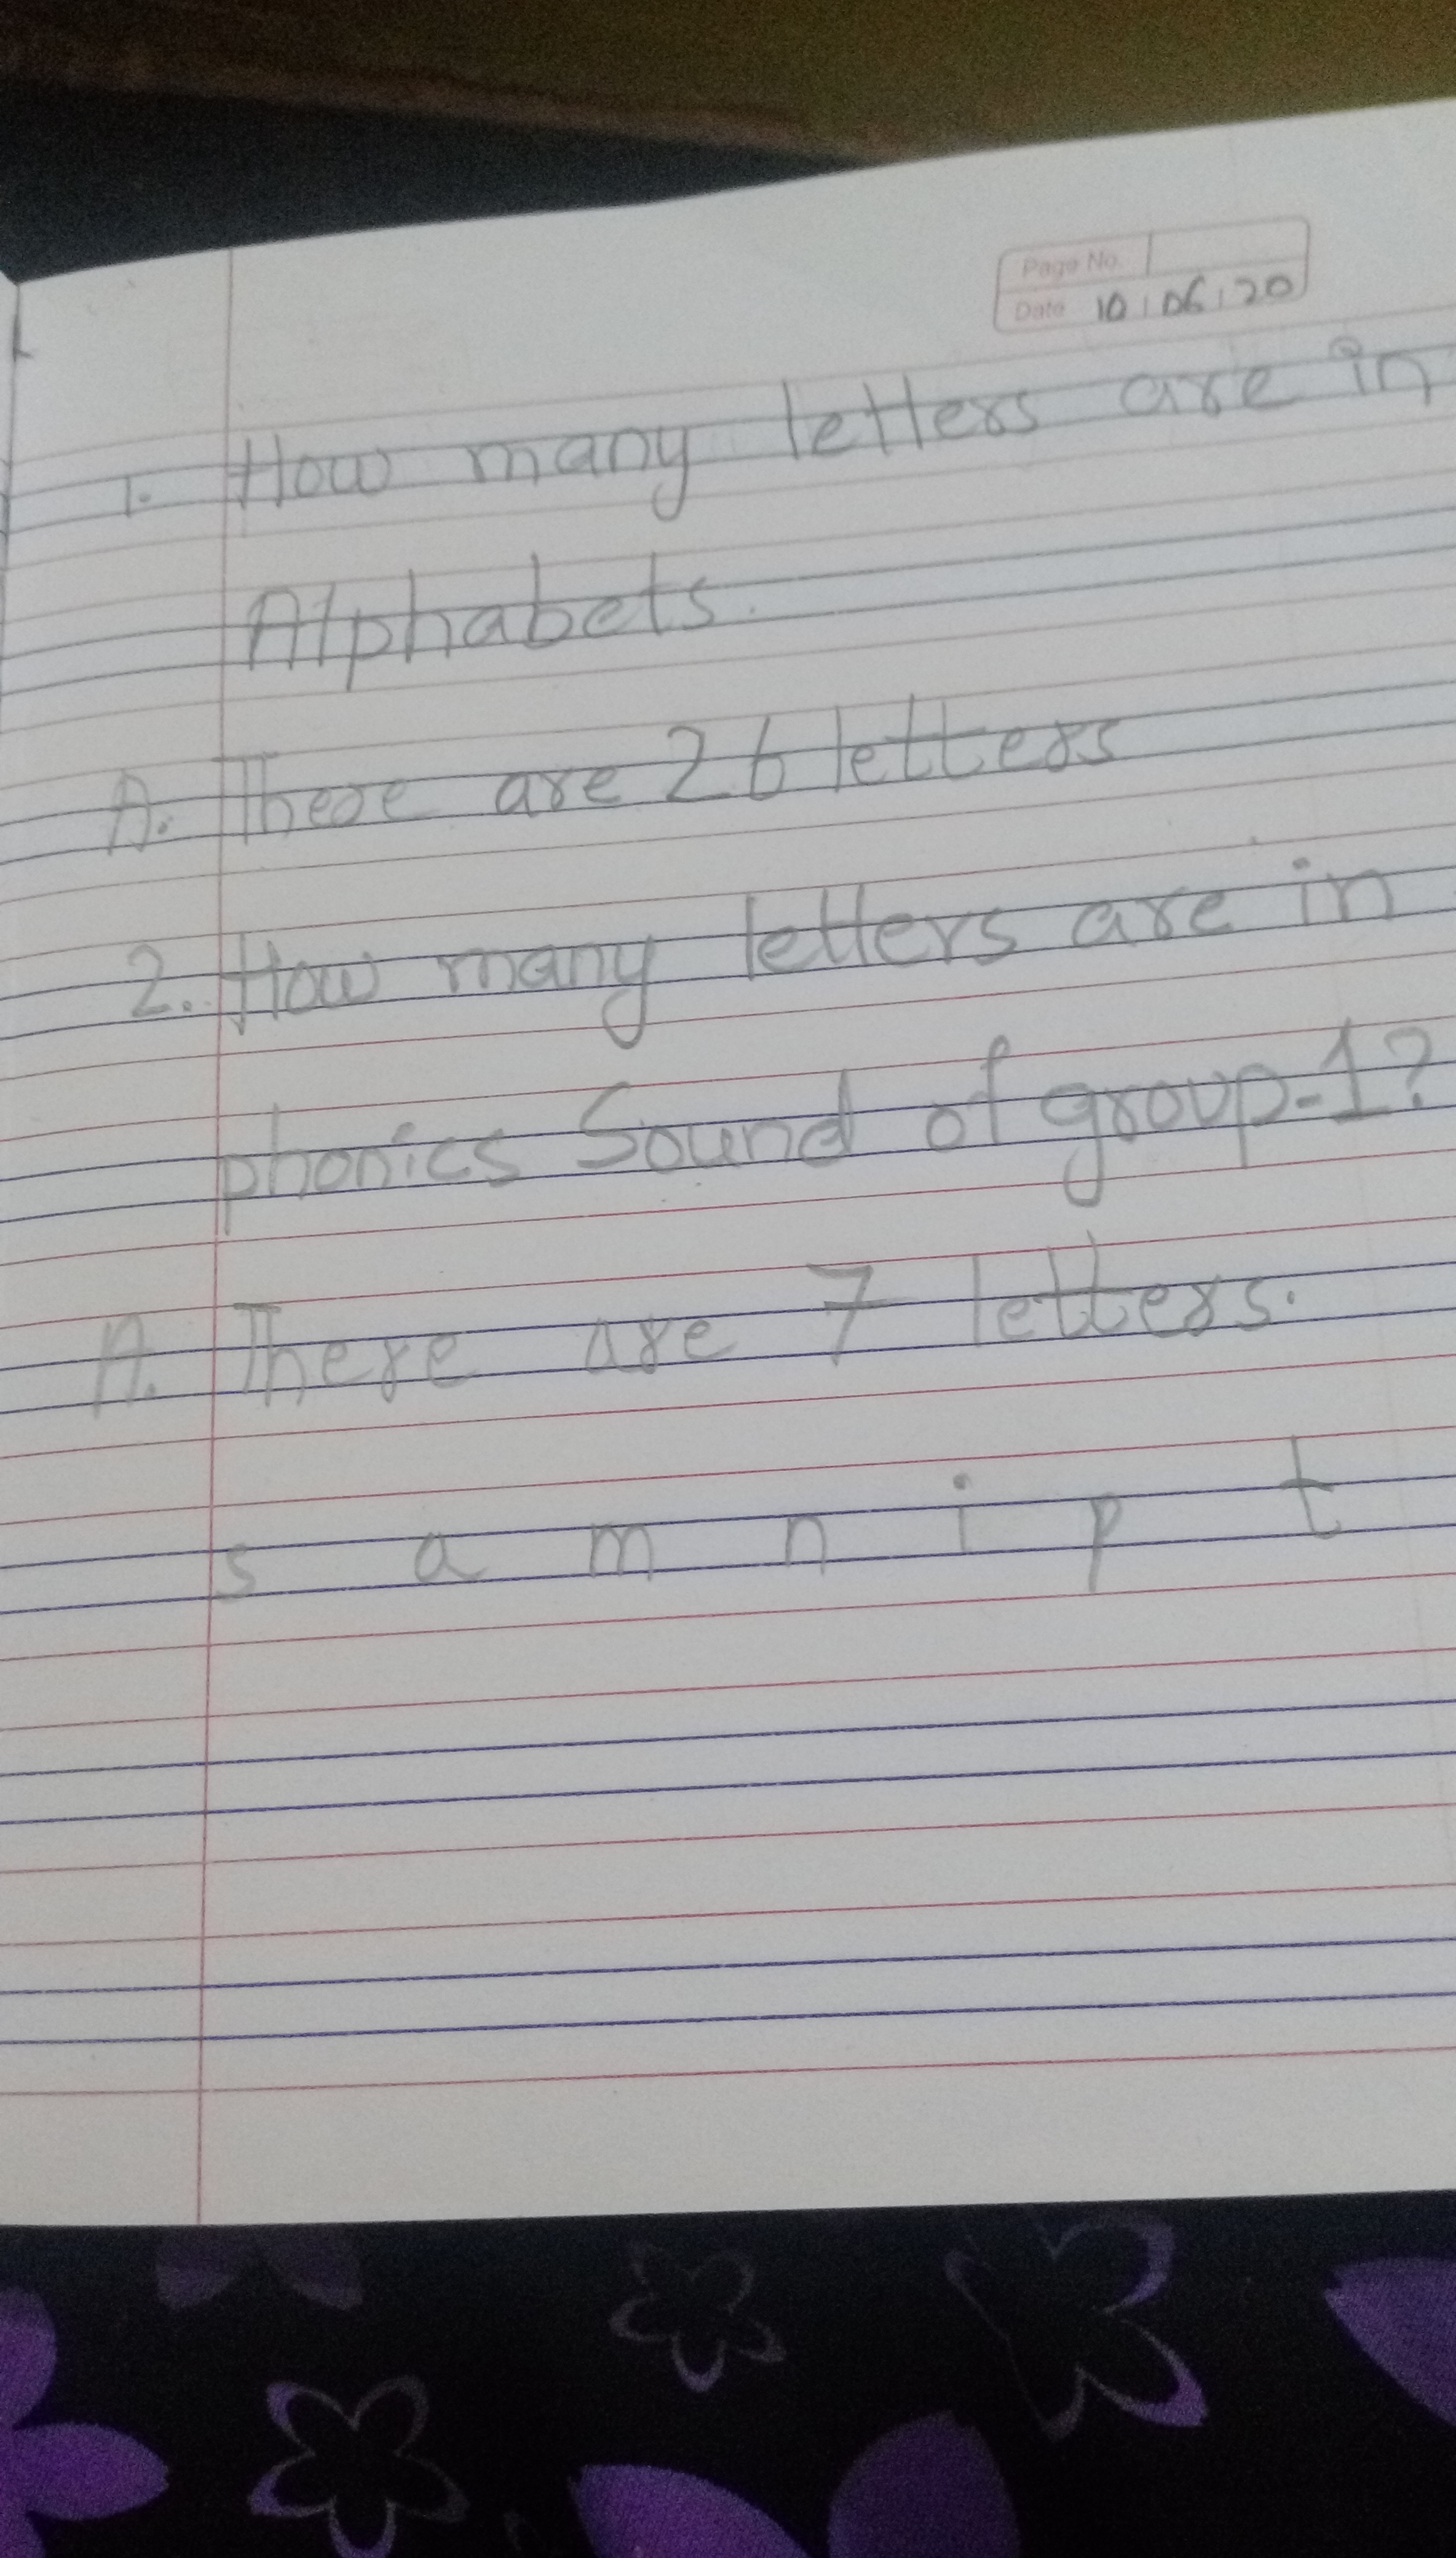 Page No.
Date 10 06 20
1. How many letters are in
Alphabets.
A. There are 26 letters
2. How many letters are in
phonics Sound of group-1?
A. There are 7 letters.
s a m n i p t